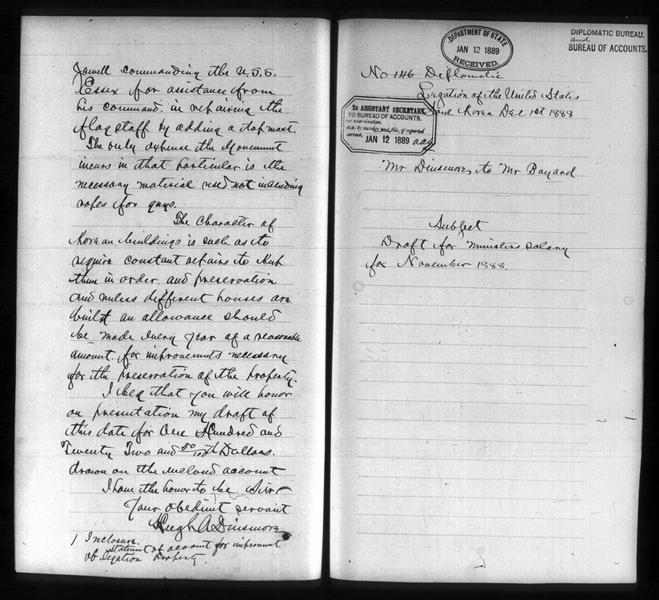 Jewell commanding the U.S.S.
Essex for assistance from
his command in repairing the
flagstaff by adding a topmast.
The only expense the Government
incurs in that particular is the
necessary material used not including
ropes for guys.
The Character of
Korean buildings is such as to
require constant repairs to keep
them in order and preservation
and unless different houses are
built an allowance should
be made every year of a reasonable
amount for improvements necessary
for the preservation of the property.
I beg that you will honor
on presentation my draft of
this date for One Hundred and
Twenty Two and 50/100 Dollars.
drawn on the account
I have the honor to be Sir
Your obedient servant
Hugh A Dinsmore
1 Inclosure.
Statement of account for improvement
of legation property.
No 146 Diplomatic
Legation of the United States
Seoul Korea Dec 1st 1888
Mr Dinsmore to Mr Bayard
Subject
Draft for Ministers salary
for November 1888.
DEPARTMENT OF STATE
JAN 12 1889
RECEIVED.
DIPLOMATIC BUREAU.
and
BUREAU OF ACCOUNTS.
ASSISTANT SECRETARY,
TO BUREAU OF ACCOUNTS,
for examination.
Ack. by number and file, if reported
correct.
JAN 12 1889